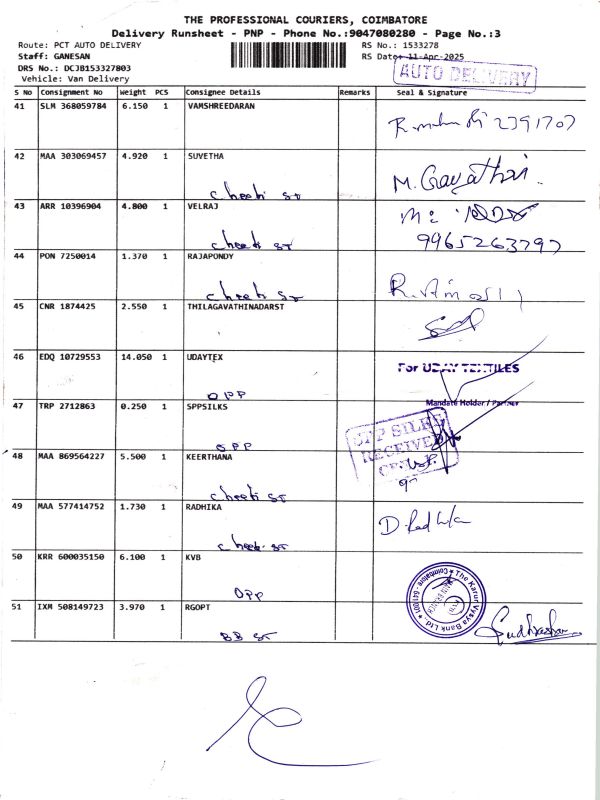 THE PROFESSIONAL COURIERS, COIMBATORE
Delivery Runsheet - PNP - Phone No.:9047080280 - Page No.:3
Route: PCT AUTO DELIVERY RS No.: 1533278
Staff: GANESAN RS Date: 11-Apr-2025
DRS No.: DCJB153327803
AUTO DELIVERY
Vehicle: Van Delivery
S No Consignment No Weight PCS Consignee Details Remarks Seal & Signature
41 SLM 368059784 6.150 1 VAMSHREEDARAN
2391707
42 MAA 303069457 4.920 1 SUVETHA
cheeti st M. Gayathri.
43 ARR 10396904 4.800 1 VELRAJ
cheeti st 9965263797
44 PON 7250014 1.370 1 RAJAPONDY
cheeti st
45 CNR 1874425 2.550 1 THILAGAVATHINADARST
46 EDQ 10729553 14.050 1 UDAYTEX For UDAY TEXTILES
OPP Mandate Holder / Partner
47 TRP 2712863 0.250 1 SPPSILKS SPP SILKS
OPP RECEIVED
48 MAA 869564227 5.500 1 KEERTHANA
cheeti st
49 MAA 577414752 1.730 1 RADHIKA
cheeti st D. Radhika
50 KRR 600035150 6.100 1 KVB
OPP The Karur Vysya Bank Ltd. Coimbatore - 641001
51 IXM 508149723 3.970 1 RGOPT
BB st